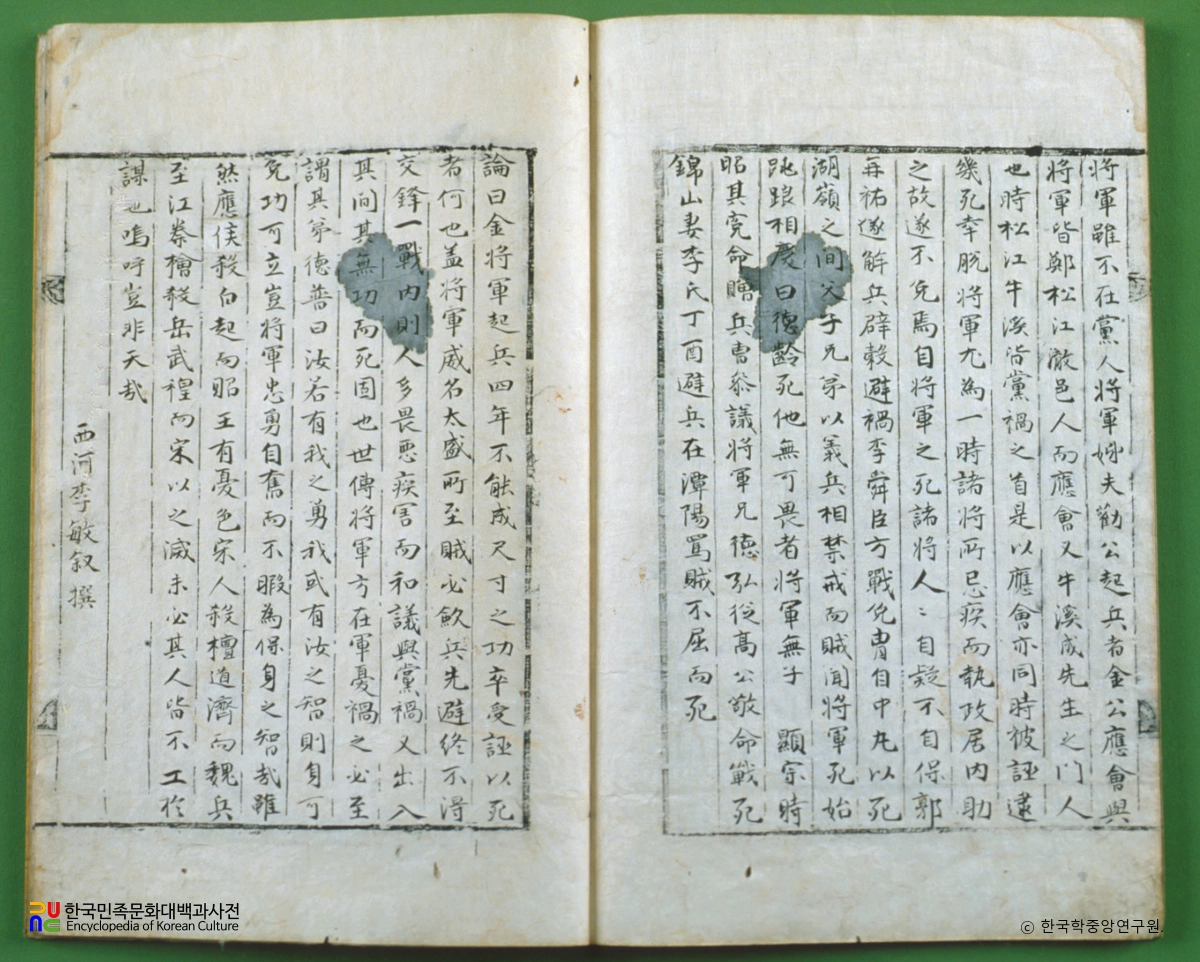 將軍雖不在黨人將軍姊夫勸公起兵者金公應會與
將軍皆鄭松江澈邑人而應會又牛溪成先生之門人
也時松江牛溪皆黨禍之首是以應會亦同時被誣逮
幾死幸脫將軍尤為一時諸將所忌疾而執政居内助
之故遂不免焉自將軍之死諸將人〻自疑不自保郭
再祐遂解兵辟穀避禍李舜臣方戰免冑自中丸以死
湖嶺之間父子兄弟以義兵相禁戒而賊聞將軍死始
跳踉相慶曰德齡死他無可畏者將軍無子 顯宗時
昭其寃命贈兵曹叅議將軍兄德弘從高公敬命戰死
錦山妻李氏丁酉避兵在潭陽罵賊不屈而死
論曰金將軍起兵四年不能成尺寸之功卒受誣以死
者何也盖將軍威名太盛所至賊必歛兵先避終不得
交鋒一戰内則人多畏惡疾害而和議與黨禍又出入
其間其無功而死固也世傳將軍方在軍憂禍之必至
謂其弟德普曰汝若有我之勇我或有汝之智則身可
免功可立豈將軍忠勇自奮而不暇為保身之智哉雖
然應侯殺白起而昭王有憂色宋人殺檀道濟而魏兵
至江秦檜殺岳武穆而宋以之滅未必其人皆不工於
謀也嗚呼豈非天哉
西河李敏叙撰
한국민족문화대백과사전
Encyclopedia of Korean Culture
ⓒ 한국학중앙연구원.